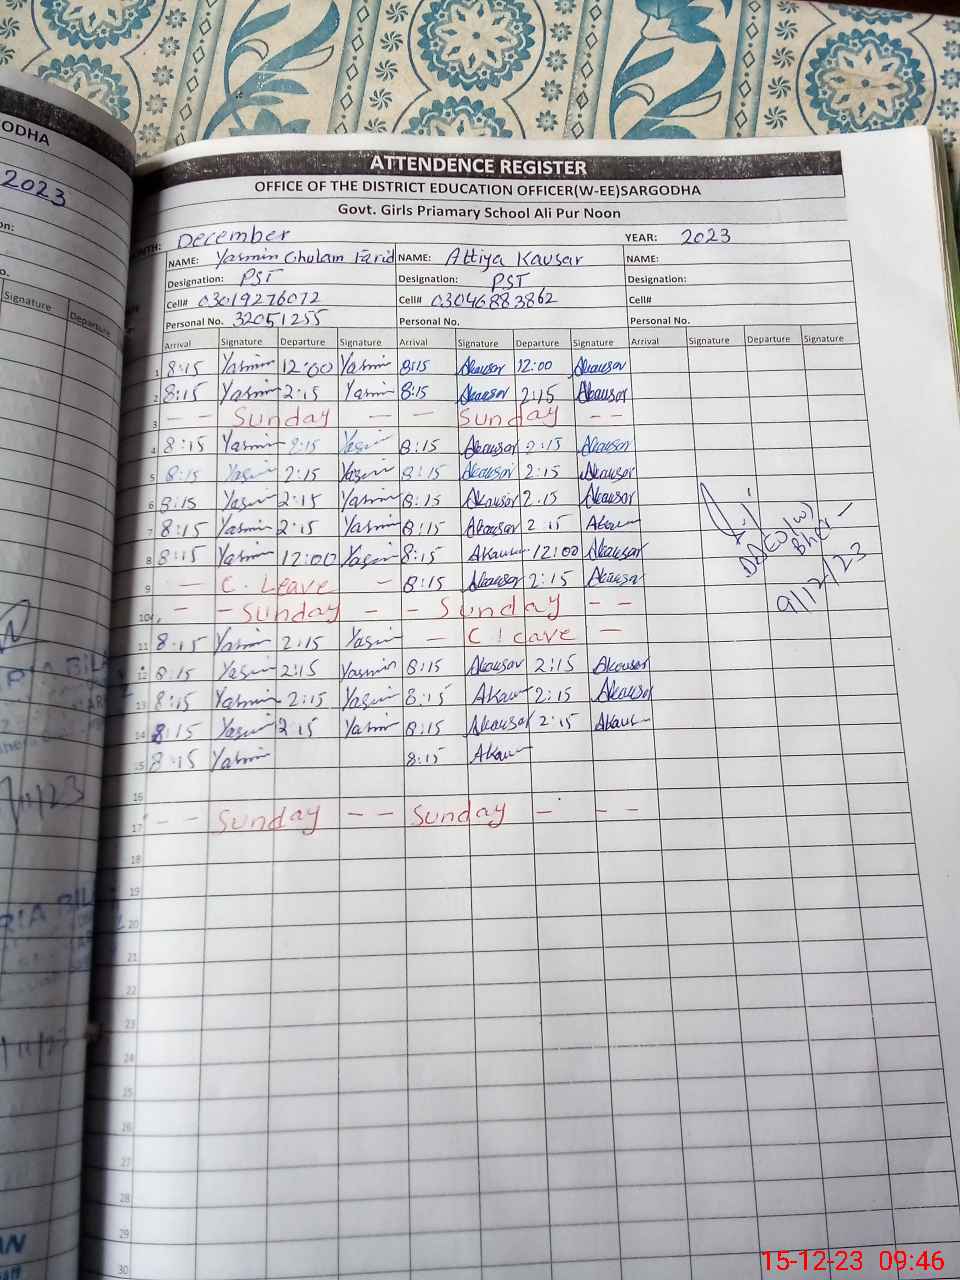 ODHA
2023
on:
o.
Signature Departure
ATTENDENCE REGISTER
OFFICE OF THE DISTRICT EDUCATION OFFICER(W-EE)SARGODHA
Govt. Girls Priamary School Ali Pur Noon
MONTH: December YEAR: 2023
NAME: Yasmin Ghulam Farid NAME: Attiya Kausar NAME:
Designation: PST Designation: PST Designation:
Cell# 03019276072 Cell# 03046883862 Cell#
Personal No. 32051255 Personal No. Personal No.
Arrival Signature Departure Signature Arrival Signature Departure Signature Arrival Signature Departure Signature
1 8:15 Yasmin 12:00 Yasmin 8:15 Akausar 12:00 Akausar
2 8:15 Yasmin 2:15 Yasmin 8:15 Akausar 2:15 Akausar
3 - - Sunday - - Sunday - -
4 8:15 Yasmin 2:15 Yasmin 8:15 Akausar 2:15 Akausar
5 8:15 Yasmin 2:15 Yasmin 8:15 Akausar 2:15 Akausar
6 8:15 Yasmin 2:15 Yasmin 8:15 Akausar 2:15 Akausar
7 8:15 Yasmin 2:15 Yasmin 8:15 Akausar 2:15 Akausar
8 8:15 Yasmin 12:00 Yasmin 8:15 Akausar 12:00 Akausar
9 - C. Leave - 8:15 Akausar 2:15 Akausar
10 - - Sunday - - Sunday - -
11 8:15 Yasmin 2:15 Yasmin - C leave -
12 8:15 Yasmin 2:15 Yasmin 8:15 Akausar 2:15 Akausar
13 8:15 Yasmin 2:15 Yasmin 8:15 Akausar 2:15 Akausar
14 8:15 Yasmin 2:15 Yasmin 8:15 Akausar 2:15 Akausar
15 8:15 Yasmin 8:15 Akausar
16
17 - - Sunday - - Sunday - - -
18
19
20
21
22
23
24
25
26
27
28
29
30
9/12/23
15-12-23 09:46